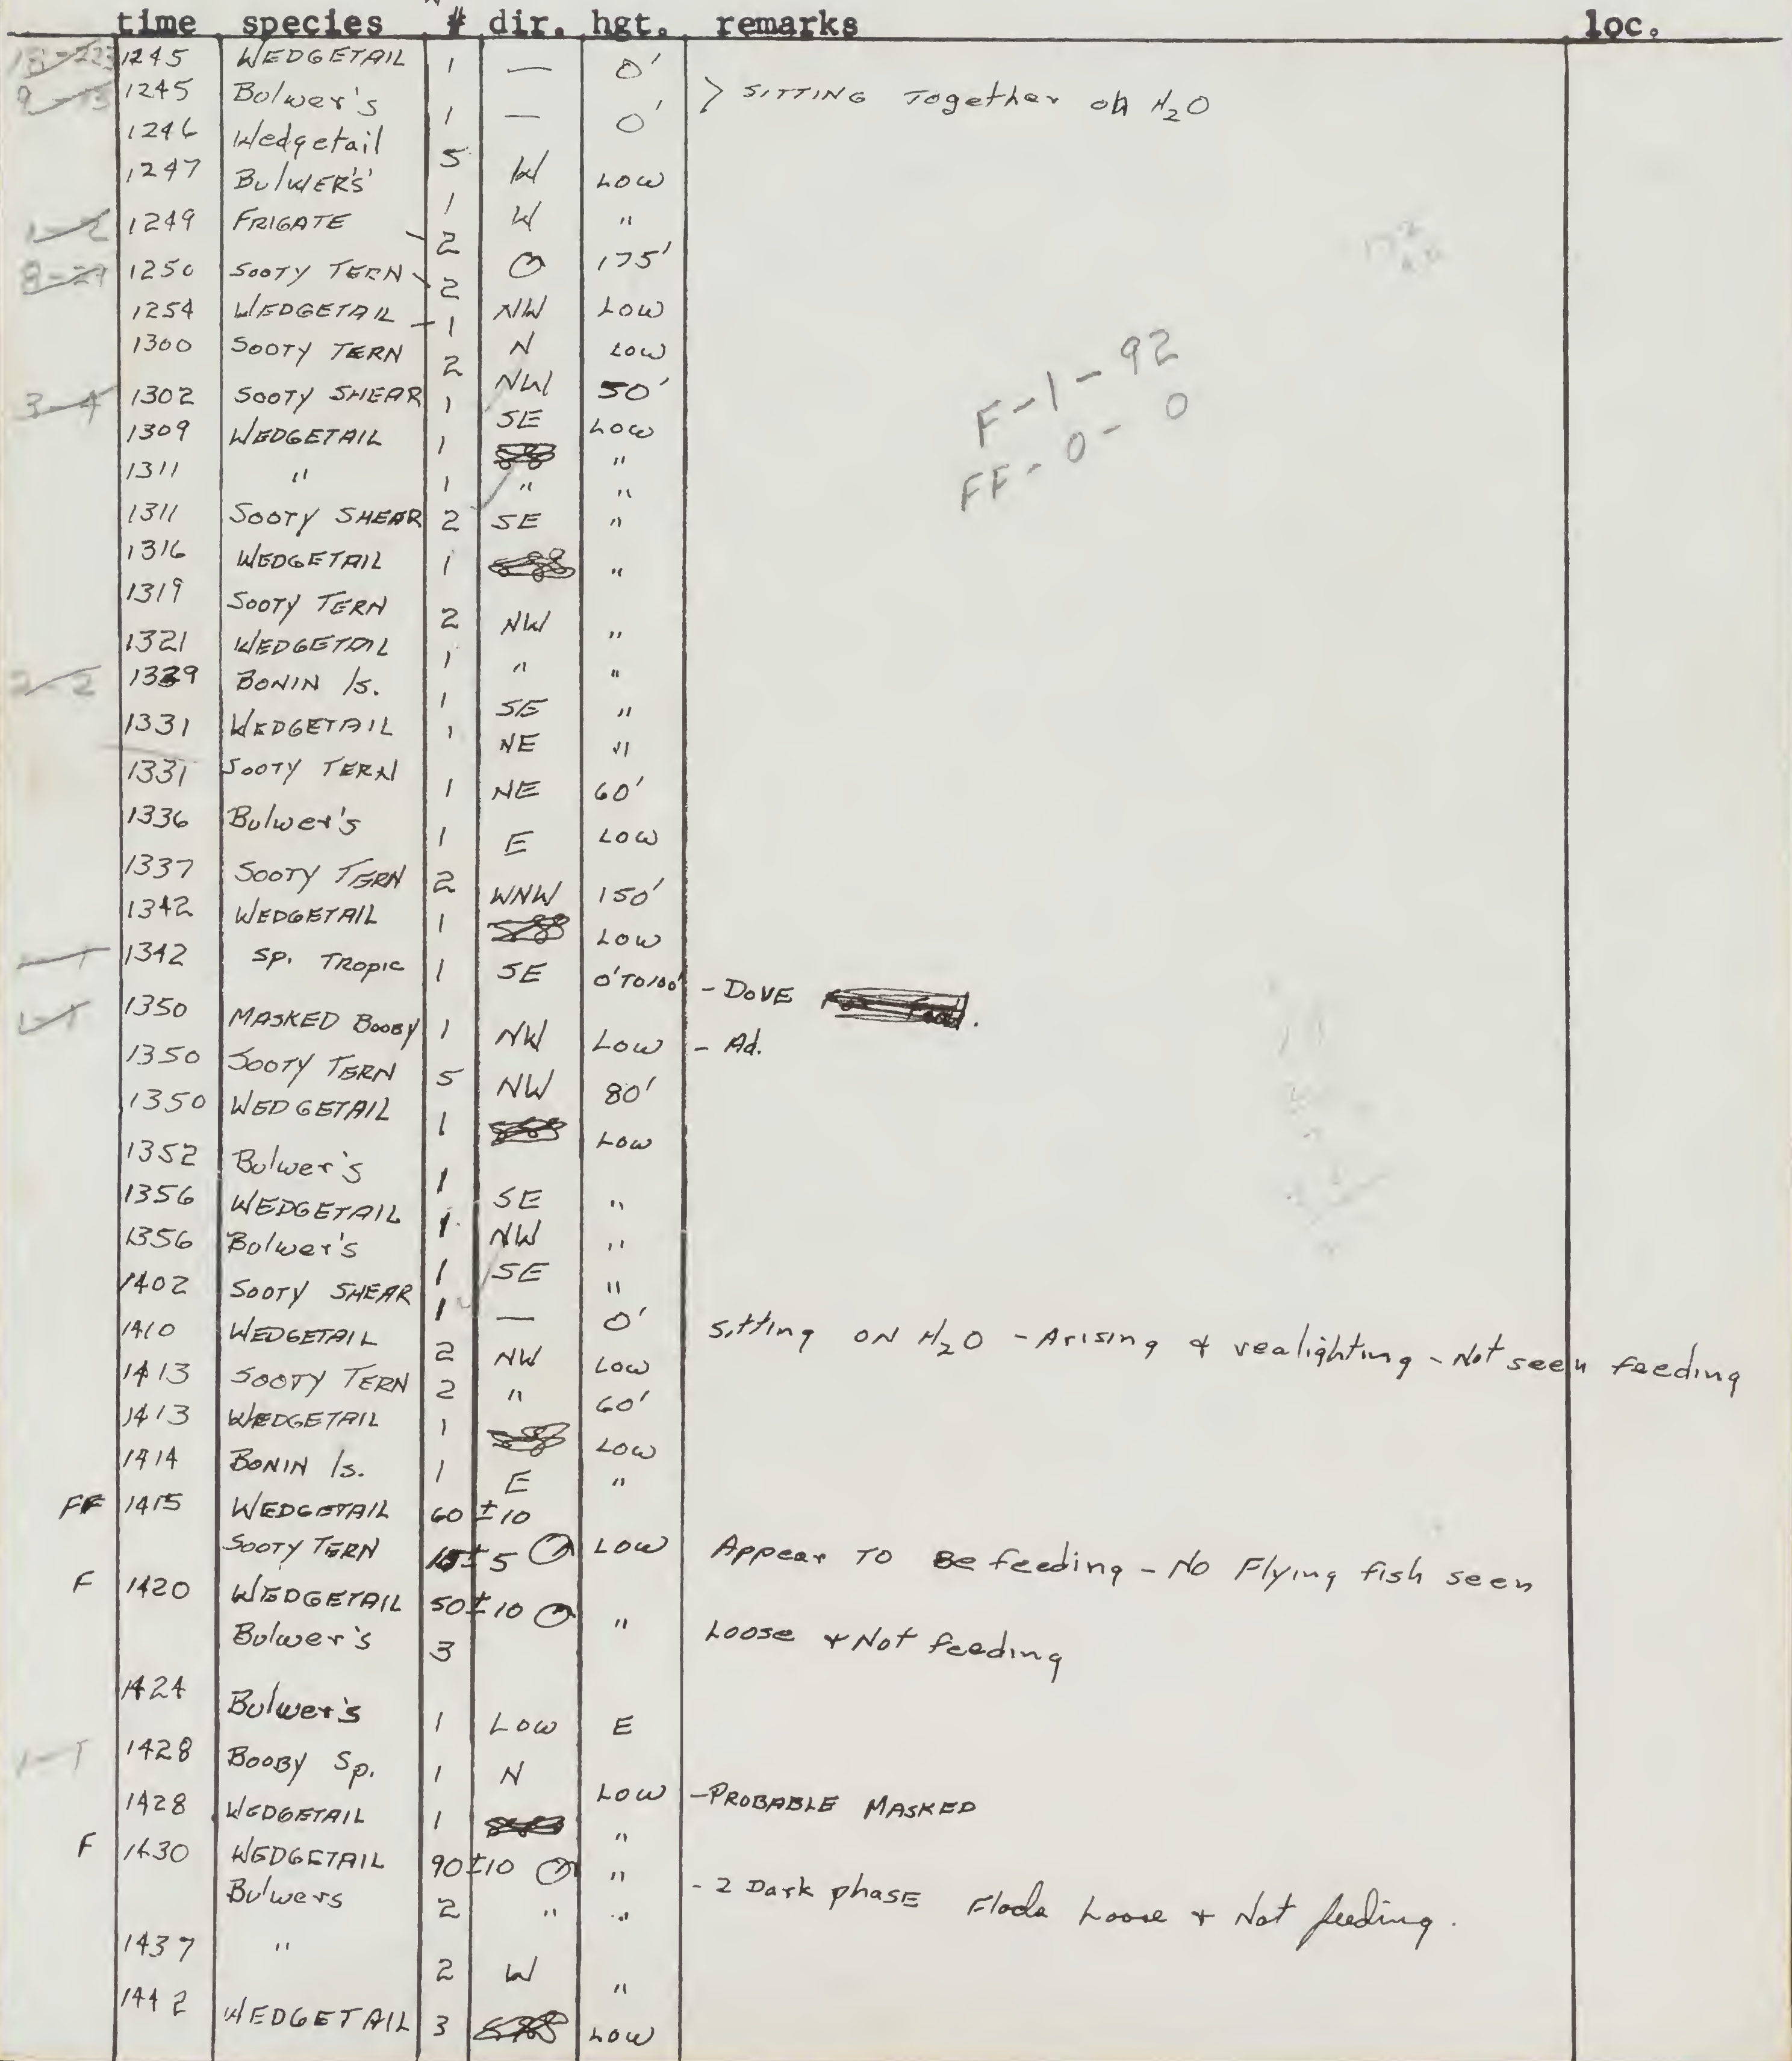 time species # dir. hgt. remarks loc.
1245 WEDGETAIL 1 — 0'
1245 Bulwer's 1 — 0' > SITTING Together on H2O
1246 Wedgetail 5 W LOW
1247 BULWER'S' 1 W "
1-2 1249 FRIGATE 2 175'
8-29 1250 SOOTY TERN 2 NW LOW
1254 WEDGETAIL 1 N LOW
1300 SOOTY TERN 2 NW 50'
3-4 1302 SOOTY SHEAR 1 SE LOW
1309 WEDGETAIL 1 "
1311 " 1 " "
1311 SOOTY SHEAR 2 SE "
1316 WEDGETAIL 1 "
1319 SOOTY TERN 2 NW "
1321 WEDGETAIL 1 " "
2-2 1329 BONIN Is. 1 SE "
1331 WEDGETAIL 1 NE "
1331 SOOTY TERN 1 NE 60'
1336 Bulwer's 1 E LOW
1337 SOOTY TERN 2 WNW 150'
1342 WEDGETAIL 1 LOW
1342 Sp. Tropic 1 SE 0'TO100' - DOVE
1-1 1350 MASKED BOOBY 1 NW LOW - Ad.
1350 SOOTY TERN 5 NW 80'
1350 WEDGETAIL 1 LOW
1352 Bulwer's 1 SE "
1356 WEDGETAIL 1 NW "
1356 Bulwer's 1 SE "
1402 SOOTY SHEAR 1 — 0' Sitting ON H2O - Arising & realighting - Not seen feeding
1410 WEDGETAIL 2 NW LOW
1413 SOOTY TERN 2 " 60'
1413 WEDGETAIL 1 LOW
1414 BONIN Is. 1 E "
FF 1415 WEDGETAIL 60 ±10
SOOTY TERN 15±5 LOW Appear TO Be feeding - NO Flying fish seen
F 1420 WEDGETAIL 50±10 " Loose & Not feeding
Bulwer's 3
1424 Bulwer's 1 LOW E
1-1 1428 BOOBY Sp. 1 N LOW - PROBABLE MASKED
1428 WEDGETAIL 1 "
F 1430 WEDGETAIL 90±10 " - 2 Dark phase Flock Loose & Not feeding.
Bulwers 2 " "
1437 " 2 W "
1442 WEDGETAIL 3 LOW
F-1-92
FF-0-0